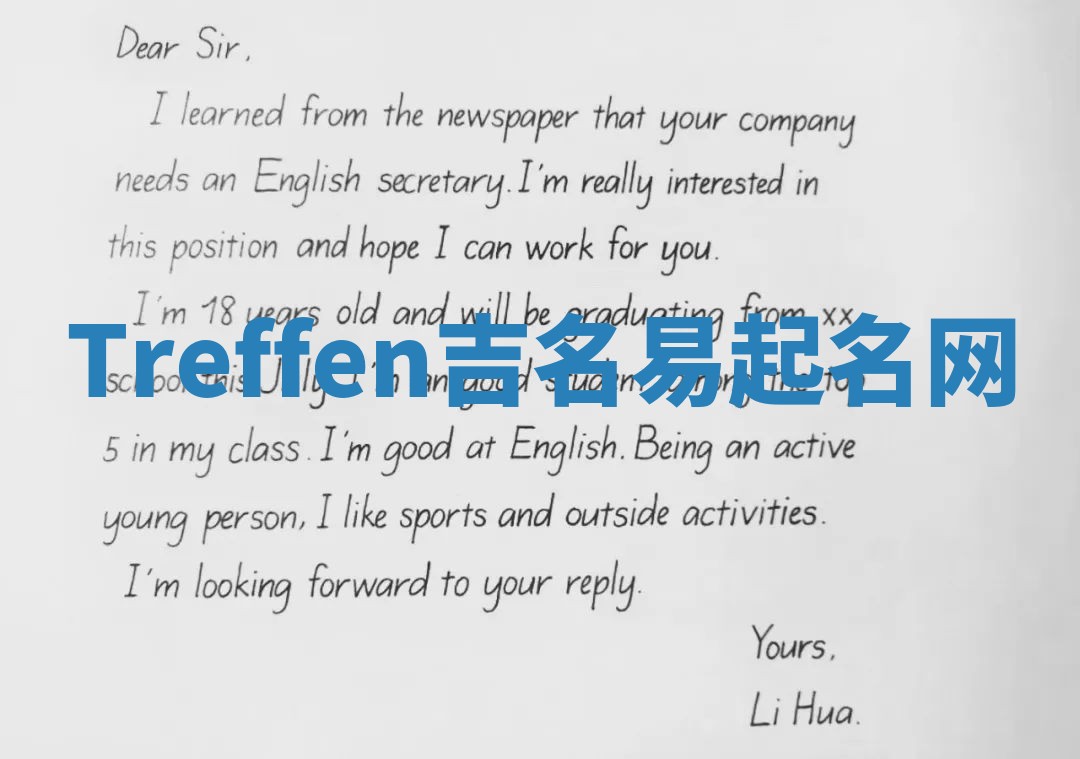 Dear Sir,
I learned from the newspaper that your company
needs an English secretary. I'm really interested in
this position and hope I can work for you.
I'm 18 years old and will be graduating from xx
Treffen吉名易起名网
school this July. I'm an good student among the top
5 in my class. I'm good at English. Being an active
young person, I like sports and outside activities.
I'm looking forward to your reply.
Yours,
Li Hua.